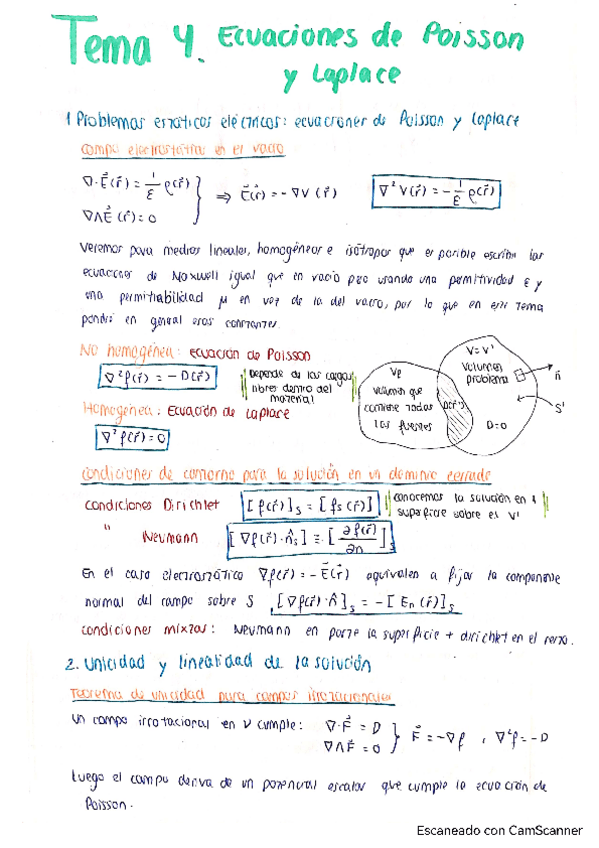 Tema 4. Ecuaciones de Poisson
y Laplace
1 Problemas estáticos eléctricos: ecuaciones de Poisson y Laplace
campo electrostático en el vacío
∇·E⃗(r⃗) = 1/ε ρ(r⃗)
∇∧E⃗(r⃗) = 0
} ⇒ E⃗(r⃗) = -∇V(r⃗)
∇²V(r⃗) = -1/ε ρ(r⃗)
Veremos para medios lineales, homogéneos e isótropos que es posible escribir las
ecuaciones de Maxwell igual que en vacío pero usando una permitividad ε y
una permithabilidad μ en vez de la del vacío, por lo que en este tema
pondré en general esas constantes.
No homogénea: ecuación de Poisson
∇²f(r⃗) = -D(r⃗)
Depende de las cargas
libres dentro del
material
Homogénea: Ecuación de Laplace
∇²f(r⃗) = 0
Vf
volumen que
contiene todas
las fuentes
D(r⃗)
V = V'
Volumen
problema
n̂
S'
D=0
condiciones de contorno para la solución en un dominio cerrado
condiciones Dirichlet [f(r⃗)]s = [fs(r⃗)]
conocemos la solución en
superficie sobre es V'
" Neumann [∇f(r⃗)·n̂s] ≡ [∂f(r⃗)/∂n]s
En el caso electrostático ∇f(r⃗) = -E⃗(r⃗) equivalen a fijar la componente
normal del campo sobre S, [∇f(r⃗)·n̂]s = -[En(r⃗)]s
condiciones mixtas: Neumann en parte la superficie + dirichlet en el resto.
2. Unicidad y linealidad de la solución
Teorema de unicidad para campos irrotacionales
Un campo irrotacional en V cumple: ∇·F⃗ = D
∇∧F⃗ = 0
} F⃗ = -∇f, ∇²f = -D
Luego el campo deriva de un potencial escalar que cumple la ecuación de
Poisson.
Escaneado con CamScanner